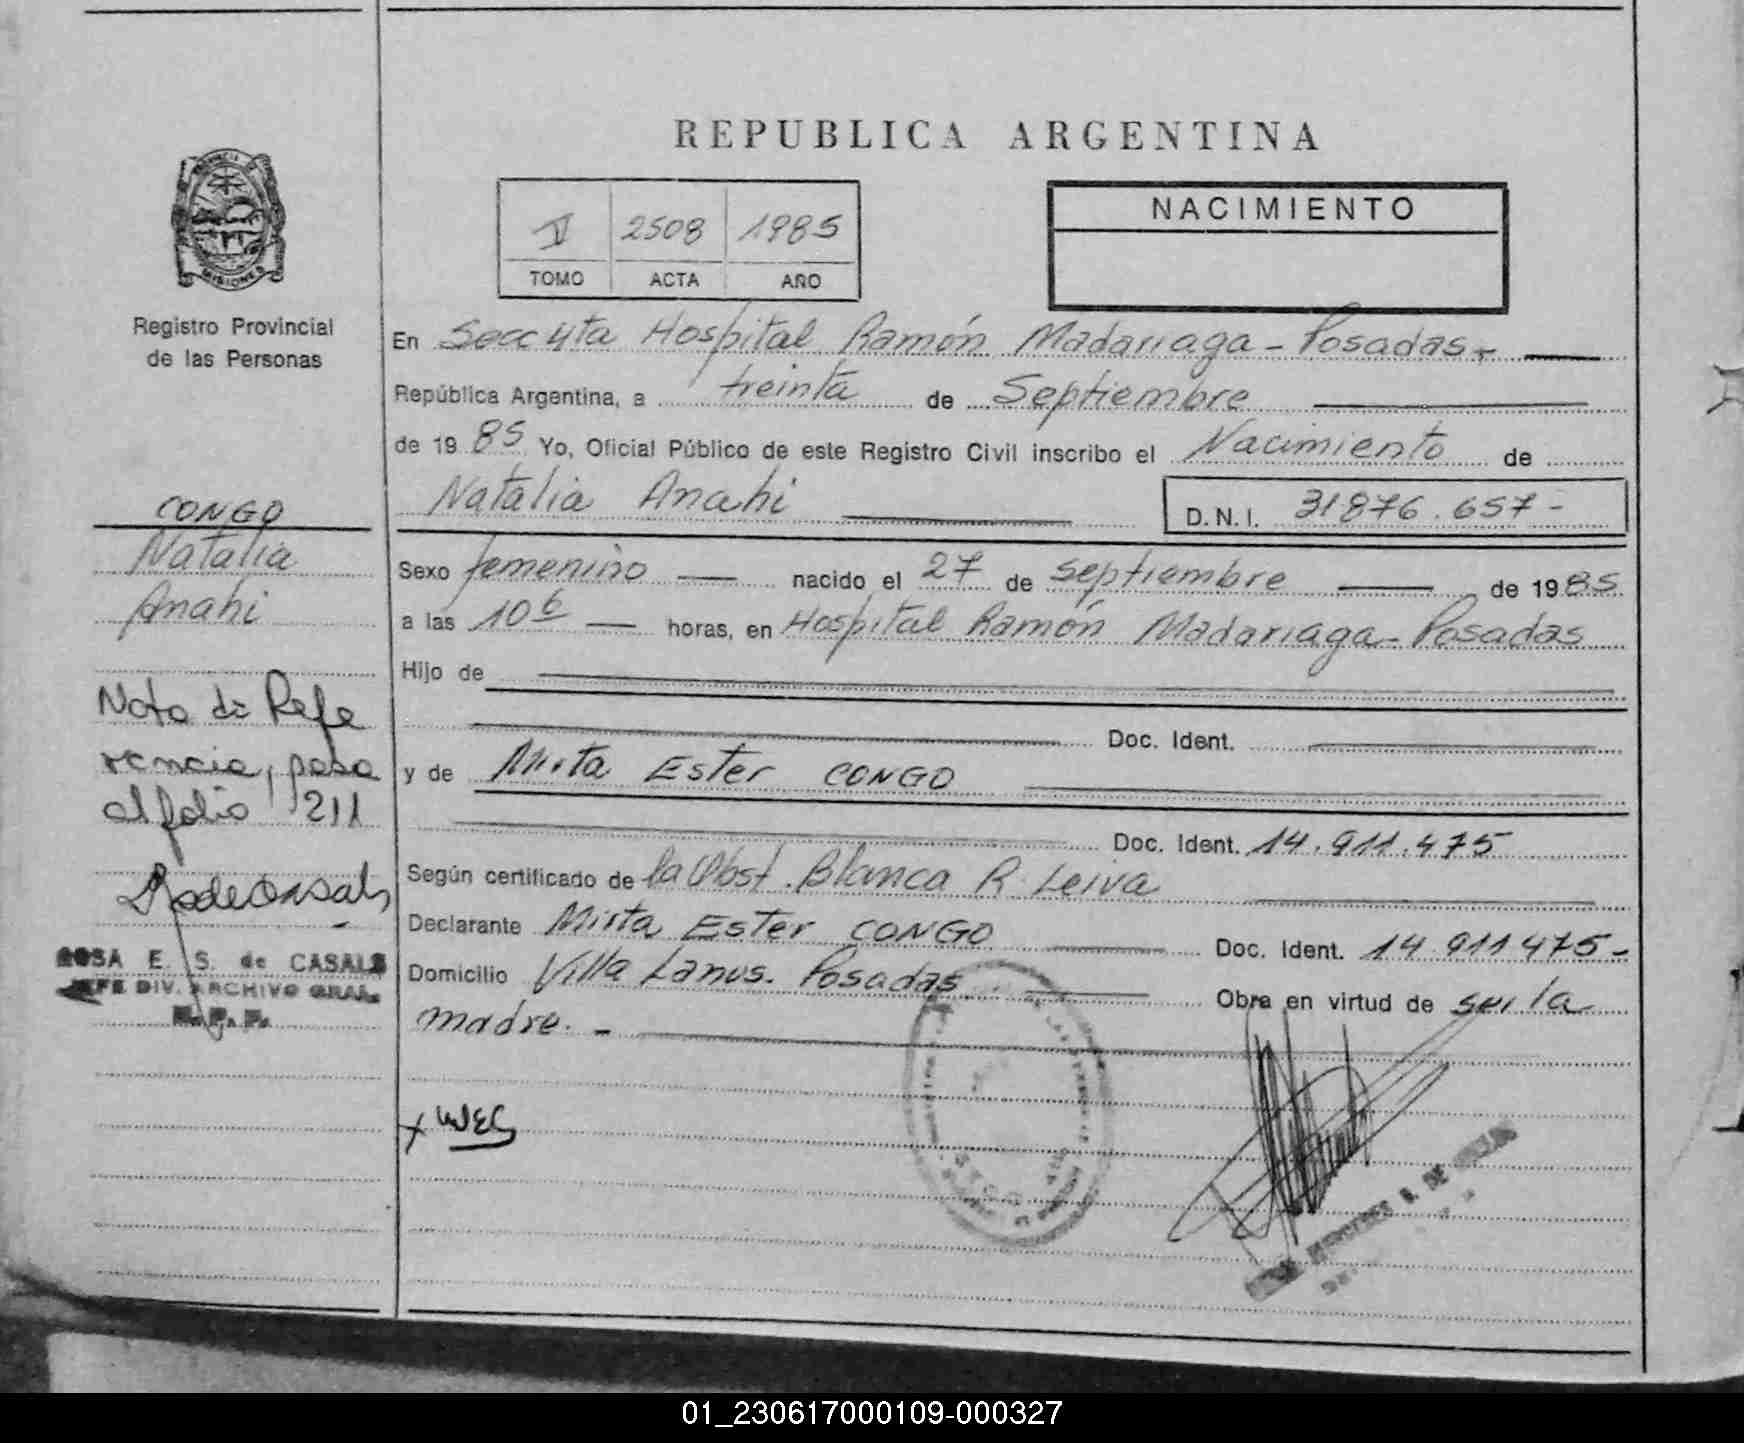 REPUBLICA ARGENTINA
PROVINCIA DE MISIONES
Registro Provincial
de las Personas
2508 1985
TOMO ACTA AÑO
NACIMIENTO
En Secc 4ta Hospital Ramón Madariaga - Posadas -
República Argentina, a treinta de Septiembre
de 1985 Yo, Oficial Público de este Registro Civil inscribo el Nacimiento de
Natalia Anahi
D.N.I. 31876.657-
CONGO
Natalia
Anahi
Sexo femenino nacido el 27 de septiembre de 1985
a las 10 horas, en Hospital Ramón Madariaga - Posadas
Hijo de
Doc. Ident.
y de Mirta Ester CONGO
Doc. Ident. 14.911.475
Según certificado de la Obst. Blanca R. Leiva
Declarante Mirta Ester CONGO Doc. Ident. 14.911475-
Domicilio Villa Lanus. Posadas Obra en virtud de ser la
madre. -
Nota de Refe
rencia, pasa
al folio 211
ROSA E. S. de CASALS
JEFE DIV. ARCHIVO GRAL.
R. P. P.
01_230617000109-000327